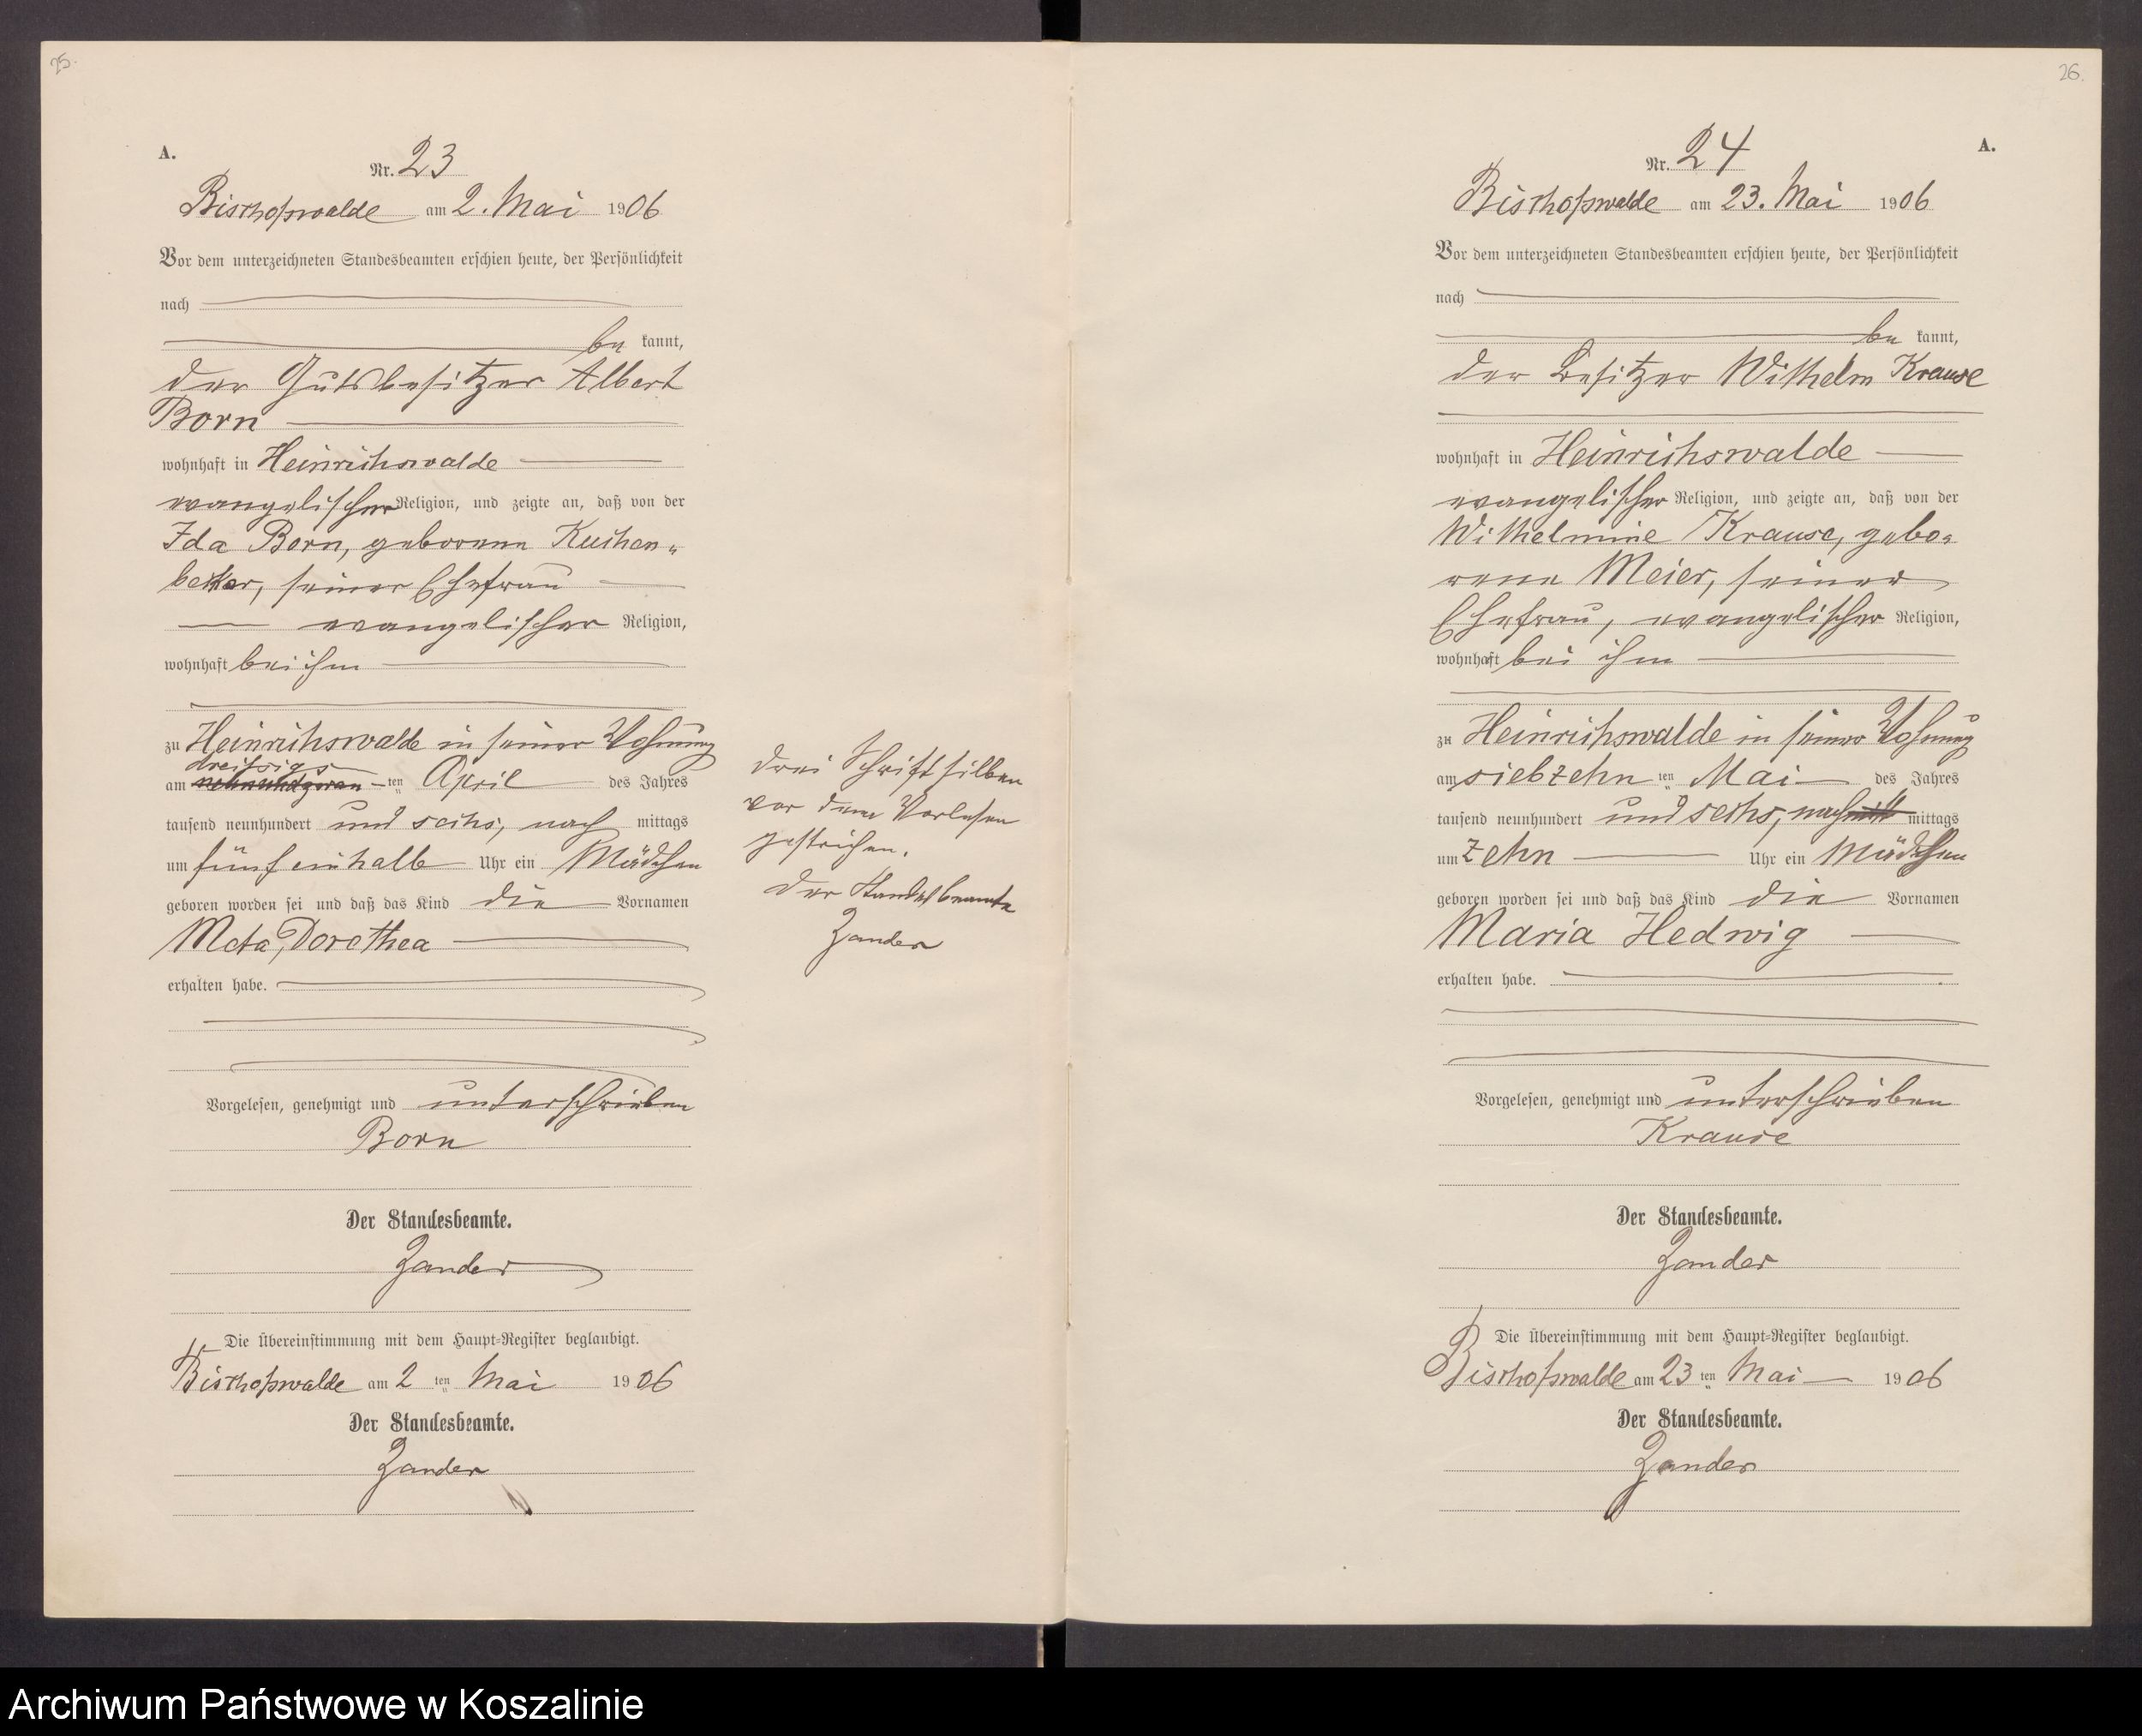 25.
A.
Nr. 23
Bischofswalde am 2. Mai 1906
Vor dem unterzeichneten Standesbeamten erschien heute, der Persönlichkeit
nach
be kannt,
der Gutsbesitzer Albert
Born
wohnhaft in Heinrichswalde
evangelischer Religion, und zeigte an, daß von der
Ida Born, geborene Kuchen-
becker, seiner Ehefrau
evangelischer Religion,
wohnhaft bei ihm
zu Heinrichswalde in seiner Wohnung
dreißigs
am neunundzwan-ten April des Jahres
tausend neunhundert und sechs, nach mittags
um fünf einhalb Uhr ein Mädchen
geboren worden sei und daß das Kind die Vornamen
Meta, Dorothea
erhalten habe.
Vorgelesen, genehmigt und unterschrieben
Born
Der Standesbeamte.
Zander
Die Übereinstimmung mit dem Haupt-Register beglaubigt.
Bischofswalde am 2 ten Mai 1906
Der Standesbeamte.
Zander
drei Schriftsilben
vor dem Vorlesen
gestrichen.
Der Standesbeamte
Zander
26.
A.
Nr. 24
Bischofswalde am 23. Mai 1906
Vor dem unterzeichneten Standesbeamten erschien heute, der Persönlichkeit
nach
be kannt,
der Besitzer Wilhelm Krause
wohnhaft in Heinrichswalde
evangelischer Religion, und zeigte an, daß von der
Wilhelmine Krause, gebo-
rene Meier, seiner
Ehefrau, evangelischer Religion,
wohnhaft bei ihm
zu Heinrichswalde in seiner Wohnung
am siebzehn ten Mai des Jahres
tausend neunhundert und sechs, nachmitt mittags
um zehn Uhr ein Mädchen
geboren worden sei und daß das Kind die Vornamen
Maria Hedwig
erhalten habe.
Vorgelesen, genehmigt und unterschrieben
Krause
Der Standesbeamte.
Zander
Die Übereinstimmung mit dem Haupt-Register beglaubigt.
Bischofswalde am 23 ten Mai 1906
Der Standesbeamte.
Zander
Archiwum Państwowe w Koszalinie